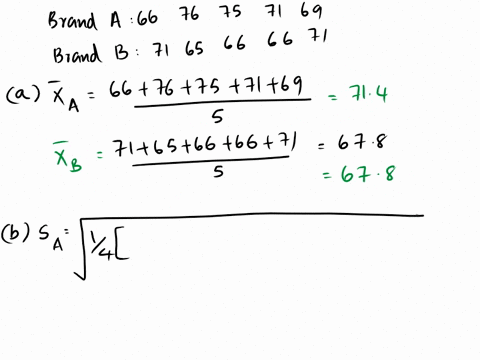 Brand A : 66 76 75 71 69
Brand B : 71 65 66 66 71
(a) X̄_A = (66+76+75+71+69)/5 = 71.4
X̄_B = (71+65+66+66+71)/5 = 67.8
= 67.8
(b) S_A = √(1/4 [